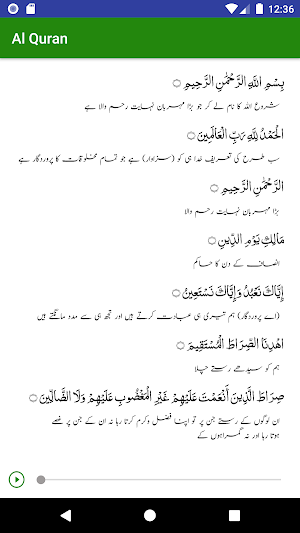 12:36
Al Quran
بِسْمِ اللَّهِ الرَّحْمَٰنِ الرَّحِيمِ ۝
شروع اللہ کا نام لے کر جو بڑا مہربان نہایت رحم والا ہے
الْحَمْدُ لِلَّهِ رَبِّ الْعَالَمِينَ ۝
سب طرح کی تعریف خدا ہی کو (سزاوار) ہے جو تمام مخلوقات کا پروردگار ہے
الرَّحْمَٰنِ الرَّحِيمِ ۝
بڑا مہربان نہایت رحم والا
مَالِكِ يَوْمِ الدِّينِ ۝
انصاف کے دن کا حاکم
إِيَّاكَ نَعْبُدُ وَإِيَّاكَ نَسْتَعِينُ ۝
(اے پروردگار) ہم تیری ہی عبادت کرتے ہیں اور تجھ ہی سے مدد مانگتے ہیں
اهْدِنَا الصِّرَاطَ الْمُسْتَقِيمَ ۝
ہم کو سیدھے رستے چلا
صِرَاطَ الَّذِينَ أَنْعَمْتَ عَلَيْهِمْ غَيْرِ الْمَغْضُوبِ عَلَيْهِمْ وَلَا الضَّالِّينَ ۝
ان لوگوں کے رستے جن پر تو اپنا فضل وکرم کرتا رہا نہ ان کے جن پر غصے
ہوتا رہا اور نہ گمراہوں کے